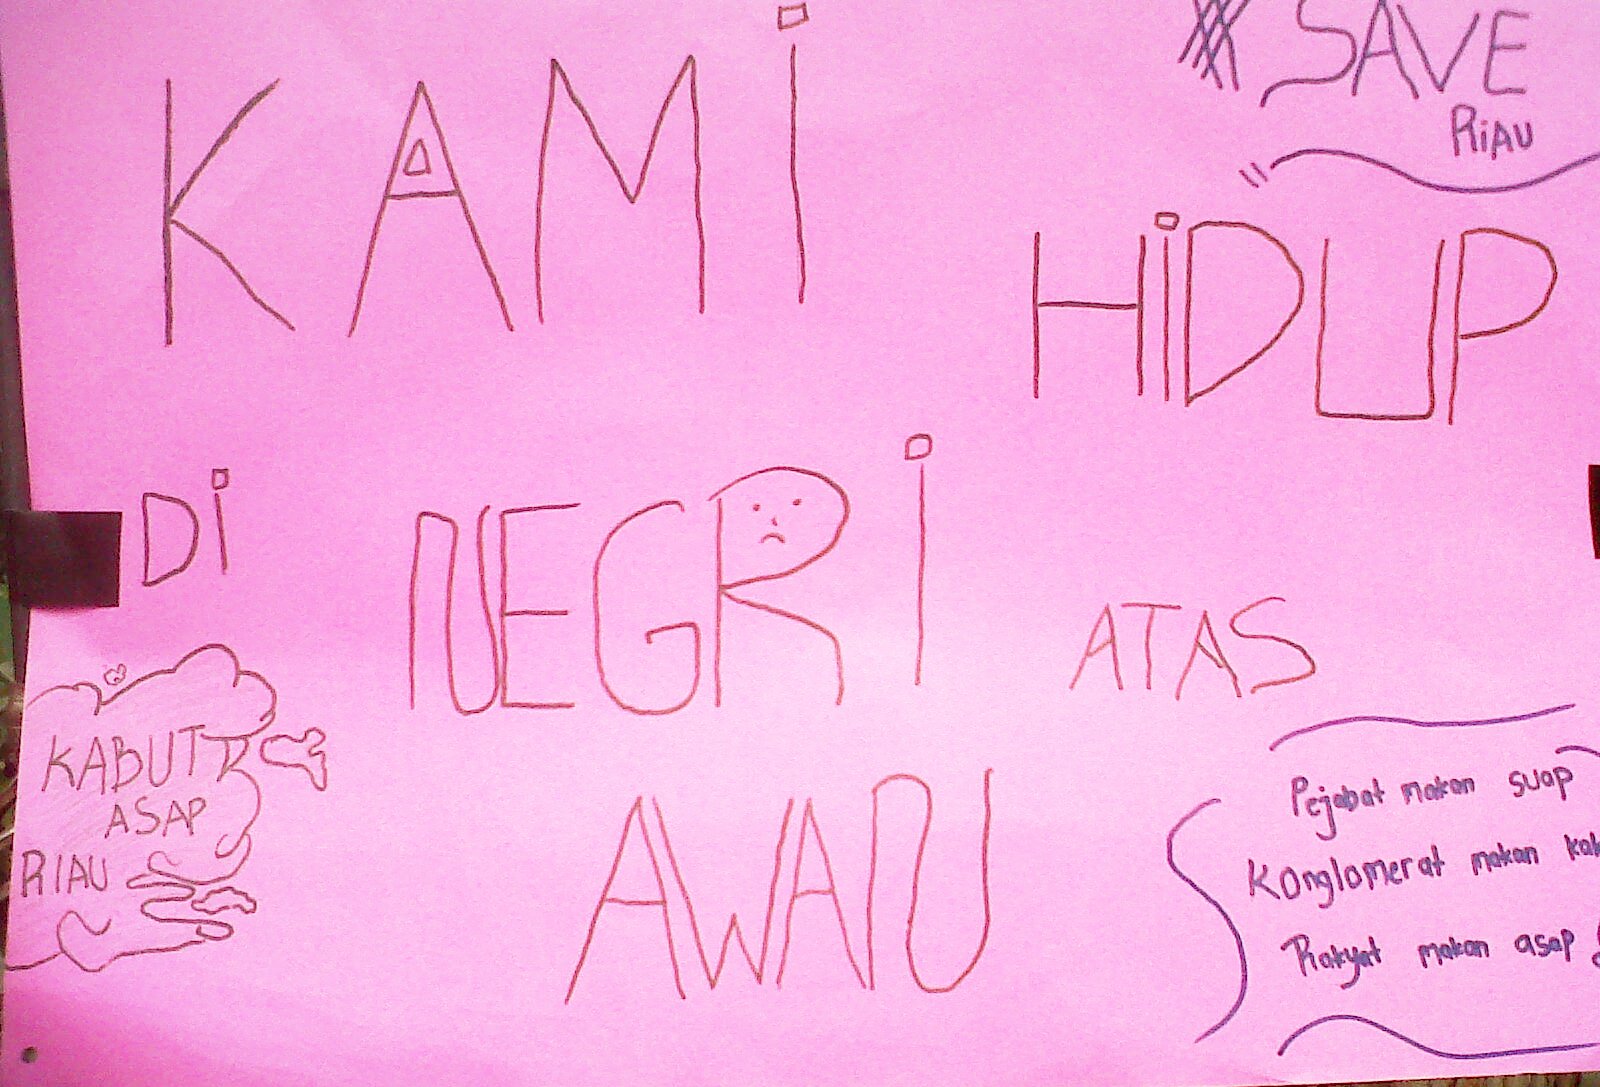 KAMi
# SAVE
RiAU
HiDUP
Di NEGRi ATAS
AWAN
KABUT
ASAP
RIAU
Pejabat makan suap
Konglomerat makan
Rakyat makan asap